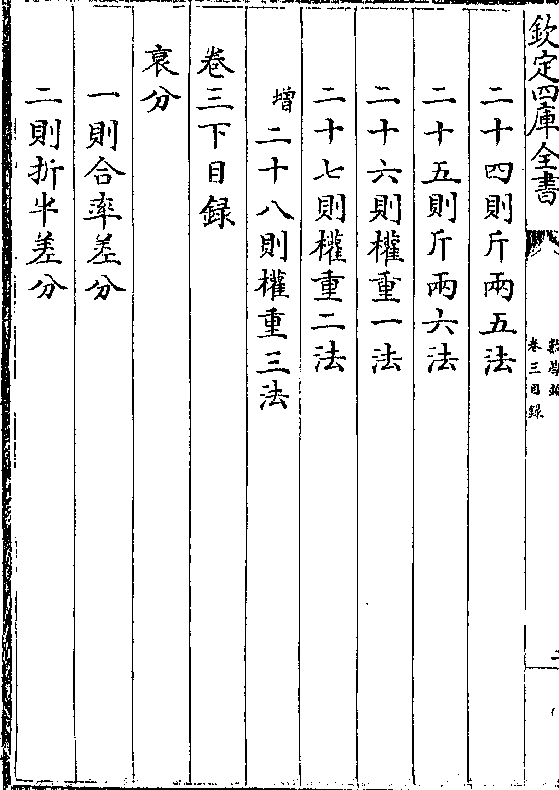 欽定四庫全書
卷三目録
二十四則斤兩五法
二十五則斤兩六法
二十六則權重一法
二十七則權重二法
增二十八則權重三法
卷三下目録
衰分
一則合率差分
二則折半差分